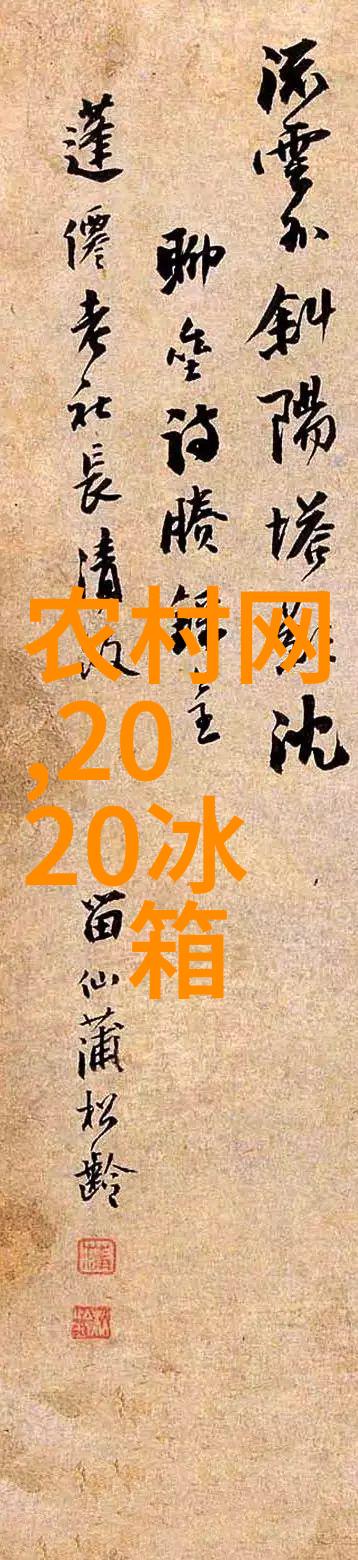 流雲外斜陽塔沈
聊詩
蓬僊老社長清
留仙蒲松齡
农村网
,20
20冰
箱